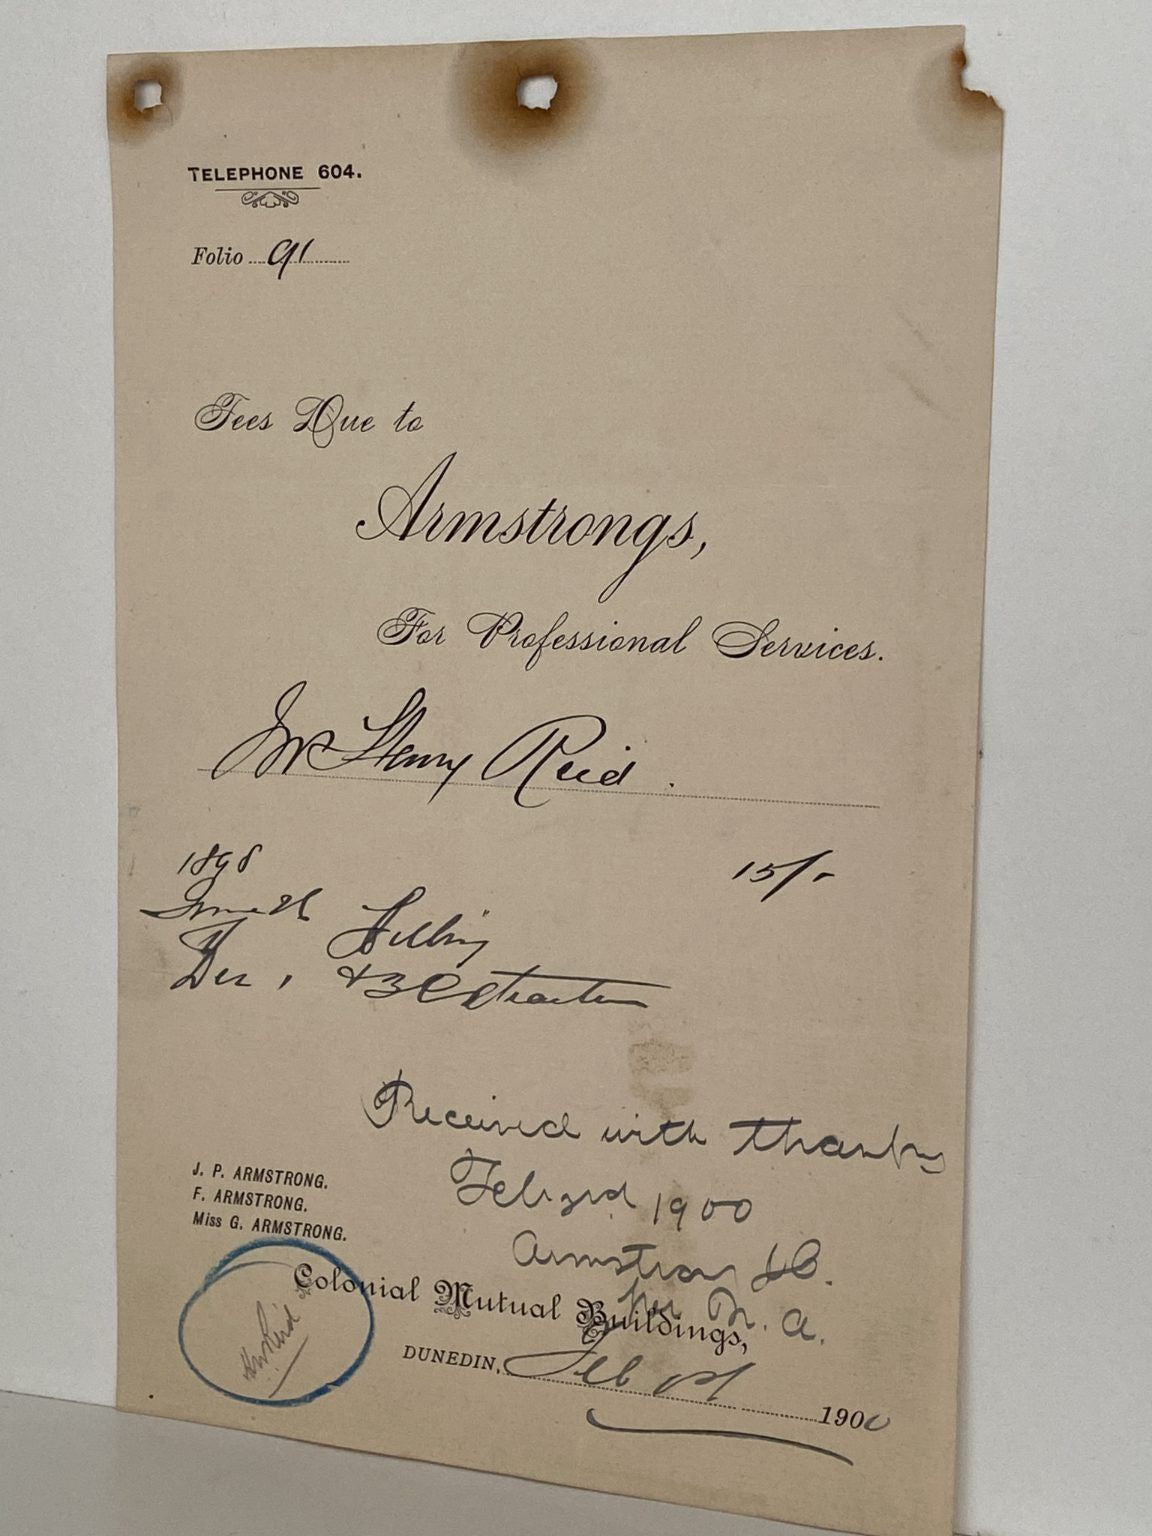 TELEPHONE 604.
Folio 91
Fees Due to
Armstrongs,
For Professional Services.
Mr Henry Reid.
1898
15/-
Filling
Dec, + 3 Extraction
Received with thanks
Feb 3rd 1900
J. P. ARMSTRONG.
F. ARMSTRONG.
Miss G. ARMSTRONG.
Armstrong
Colonial Mutual Buildings,
per A.
H Reid
DUNEDIN, Feb 1st 1900